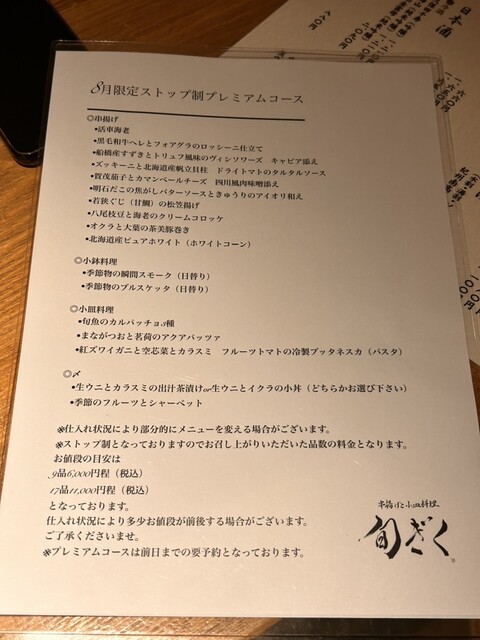 8月限定ストップ制プレミアムコース
◎串揚げ
•活車海老
•黒毛和牛ヘレとフォアグラのロッシーニ仕立て
•船橋産すずきとトリュフ風味のヴィシソワーズ　キャビア添え
•ズッキーニと北海道産帆立貝柱　ドライトマトのタルタルソース
•賀茂茄子とカマンベールチーズ　四川風肉味噌添え
•明石だこの焦がしバターソースときゅうりのアイオリ和え
•若狭ぐじ（甘鯛）の松笠揚げ
•八尾枝豆と海老のクリームコロッケ
•オクラと大葉の茶美豚巻き
•北海道産ピュアホワイト（ホワイトコーン）
◎小鉢料理
•季節物の瞬間スモーク（日替り）
•季節物のブルスケッタ（日替り）
◎小皿料理
•旬魚のカルパッチョ3種
•まながつおと茗荷のアクアパッツァ
•紅ズワイガニと空芯菜とカラスミ　フルーツトマトの冷製プッタネスカ（パスタ）
◎〆
•生ウニとカラスミの出汁茶漬けor生ウニとイクラの小丼（どちらかお選び下さい）
•季節のフルーツとシャーベット
※仕入れ状況により部分的にメニューを変える場合がございます。
※ストップ制となっておりますのでお召し上がりいただいた品数の料金となります。
お値段の目安は
9品6,000円程（税込）
17品11,000円程（税込）
となっております。
仕入れ状況により多少お値段が前後する場合がございます。
ご了承くださいませ。
※プレミアムコースは前日までの要予約となっております。
串揚げと小皿料理
旬ざく
日本酒